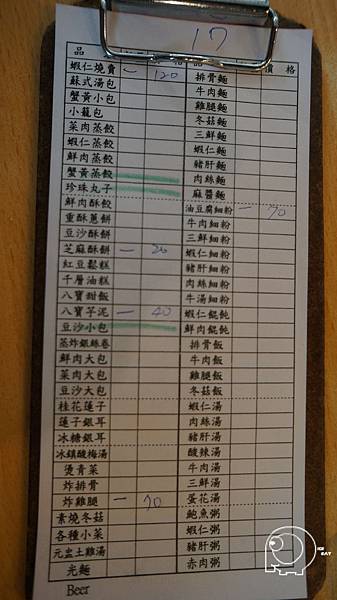 17
品
格
價 格
蝦仁燒賣 一 120
蘇式湯包
蟹黃小包
小籠包
菜肉蒸餃
蝦仁蒸餃
鮮肉蒸餃
蟹黃蒸餃
珍珠丸子
鮮肉酥餃
重酥蔥餅
豆沙酥餅
芝麻酥餅 一 20
紅豆鬆糕
千層油糕
八寶甜飯
八寶芋泥 一 40
豆沙小包
蒸炸銀絲卷
鮮肉大包
菜肉大包
豆沙大包
桂花蓮子
蓮子銀耳
冰糖銀耳
冰鎮酸梅湯
燙青菜
炸排骨
炸雞腿 一 70
素燒冬菇
各種小菜
元盅土雞湯
光麵
Beer
排骨麵
牛肉麵
雞腿麵
冬菇麵
三鮮麵
蝦仁麵
豬肝麵
肉絲麵
麻醬麵
油豆腐細粉 一 70
牛肉細粉
三鮮細粉
蝦仁細粉
豬肝細粉
肉絲細粉
牛湯細粉
蝦仁餛飩
鮮肉餛飩
排骨飯
牛肉飯
雞腿飯
冬菇飯
蝦仁湯
肉絲湯
豬肝湯
酸辣湯
牛肉湯
三鮮湯
蛋花湯
鮑魚粥
蝦仁粥
豬肝粥
赤肉粥